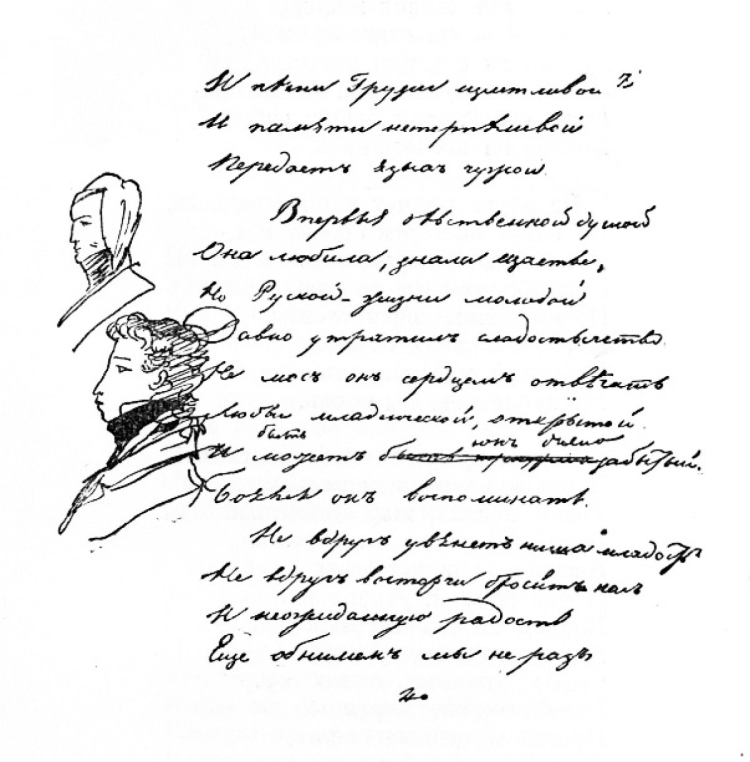 И пѣсни Грузіи щастливой 7)
И памяти нетерпѣливой
Передаетъ языкъ чужой.
Впервыя дѣвственной душой
Она любила, знала щастье,
Но Руской жизни молодой
Давно утратилъ сладострастье.
Не могъ онъ сердцемъ отвѣчать
Любви младенческой, открытой
быть сонъ любви
И можетъ забытый.
Боялся онъ воспоминать.
Не вдругъ увянетъ наша младость
Не вдругъ восторги бросятъ насъ
И неожиданную радость
Еще обнимемъ мы не разъ